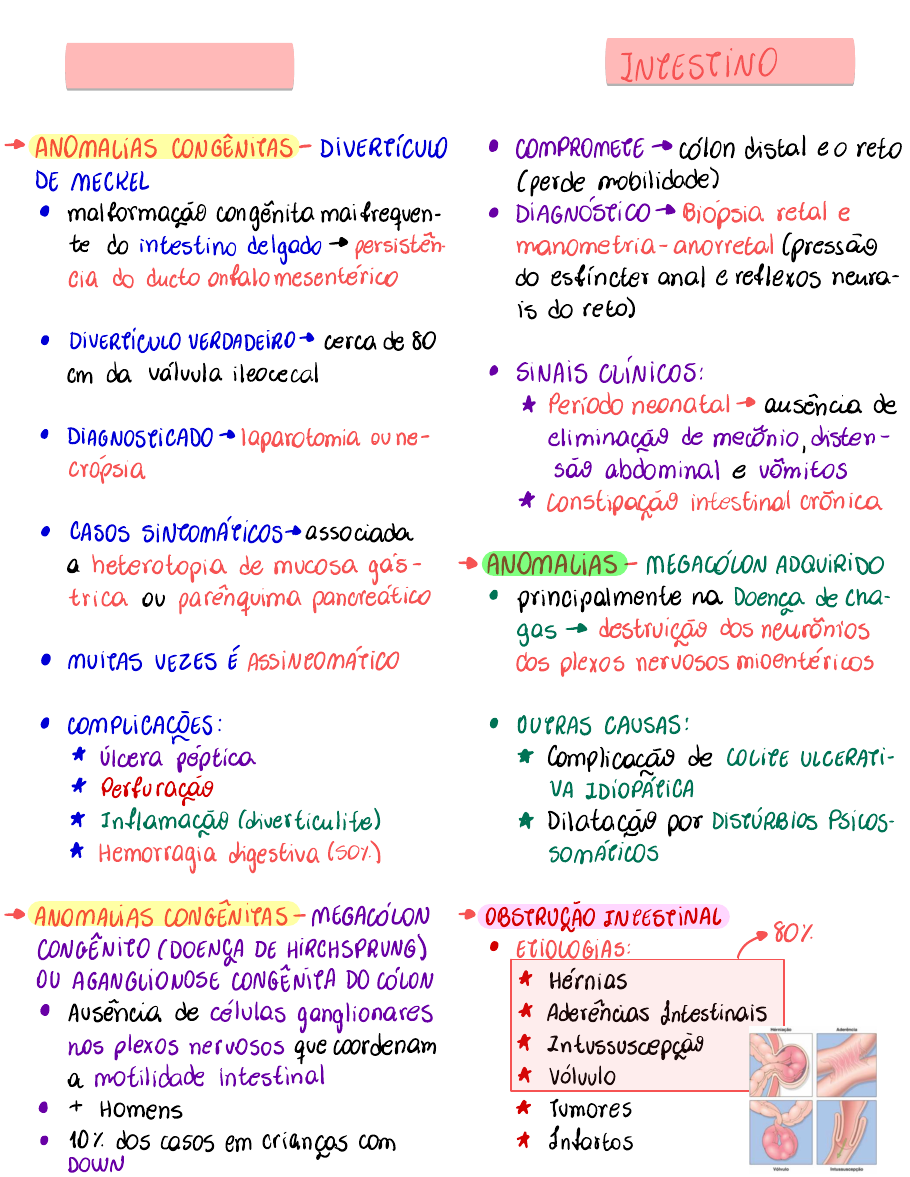 INTESTINO
→ ANOMALIAS CONGÊNITAS - DIVERTÍCULO
DE MECKEL
• malformação congênita mai frequen-
te do intestino delgado → persistên-
cia do ducto onfalomesentérico
• DIVERTÍCULO VERDADEIRO → cerca de 80
cm da válvula ileocecal
• DIAGNOSTICADO → laparotomia ou ne-
crópsia
• CASOS SINTOMÁTICOS → associada
a heterotopia de mucosa gás-
trica ou parênquima pancreático
• MUITAS VEZES É ASSINTOMÁTICO
• COMPLICAÇÕES:
★ Úlcera péptica
★ Perfuração
★ Inflamação (diverticulite)
★ Hemorragia digestiva (50%)
→ ANOMALIAS CONGÊNITAS - MEGACÓLON
CONGÊNITO (DOENÇA DE HIRCHSPRUNG)
OU AGANGLIONOSE CONGÊNITA DO CÓLON
• Ausência de células ganglionares
nos plexos nervosos que coordenam
a motilidade intestinal
• + Homens
• 10% dos casos em crianças com
DOWN
• COMPROMETE → cólon distal e o reto
(perde mobilidade)
• DIAGNÓSTICO → Biópsia retal e
manometria - anorretal (pressão
do esfíncter anal e reflexos neura-
is do reto)
• SINAIS CLÍNICOS:
★ Período neonatal → ausência de
eliminação de mecônio, disten-
são abdominal e vômitos
★ Constipação intestinal crônica
→ ANOMALIAS - MEGACÓLON ADQUIRIDO
• principalmente na Doença de cha-
gas → destruição dos neurônios
dos plexos nervosos mioentéricos
• OUTRAS CAUSAS:
★ Complicação de COLITE ULCERATI-
VA IDIOPÁTICA
★ Dilatação por DISTÚRBIOS PSICOS-
SOMÁTICOS
→ OBSTRUÇÃO INTESTINAL
• ETIOLOGIAS: → 80%
★ Hérnias
★ Aderências Intestinais
★ Intussuscepção
★ Vólvulo
★ Tumores
★ Infartos
Herniação Aderência
Vólvulo Intussuscepção